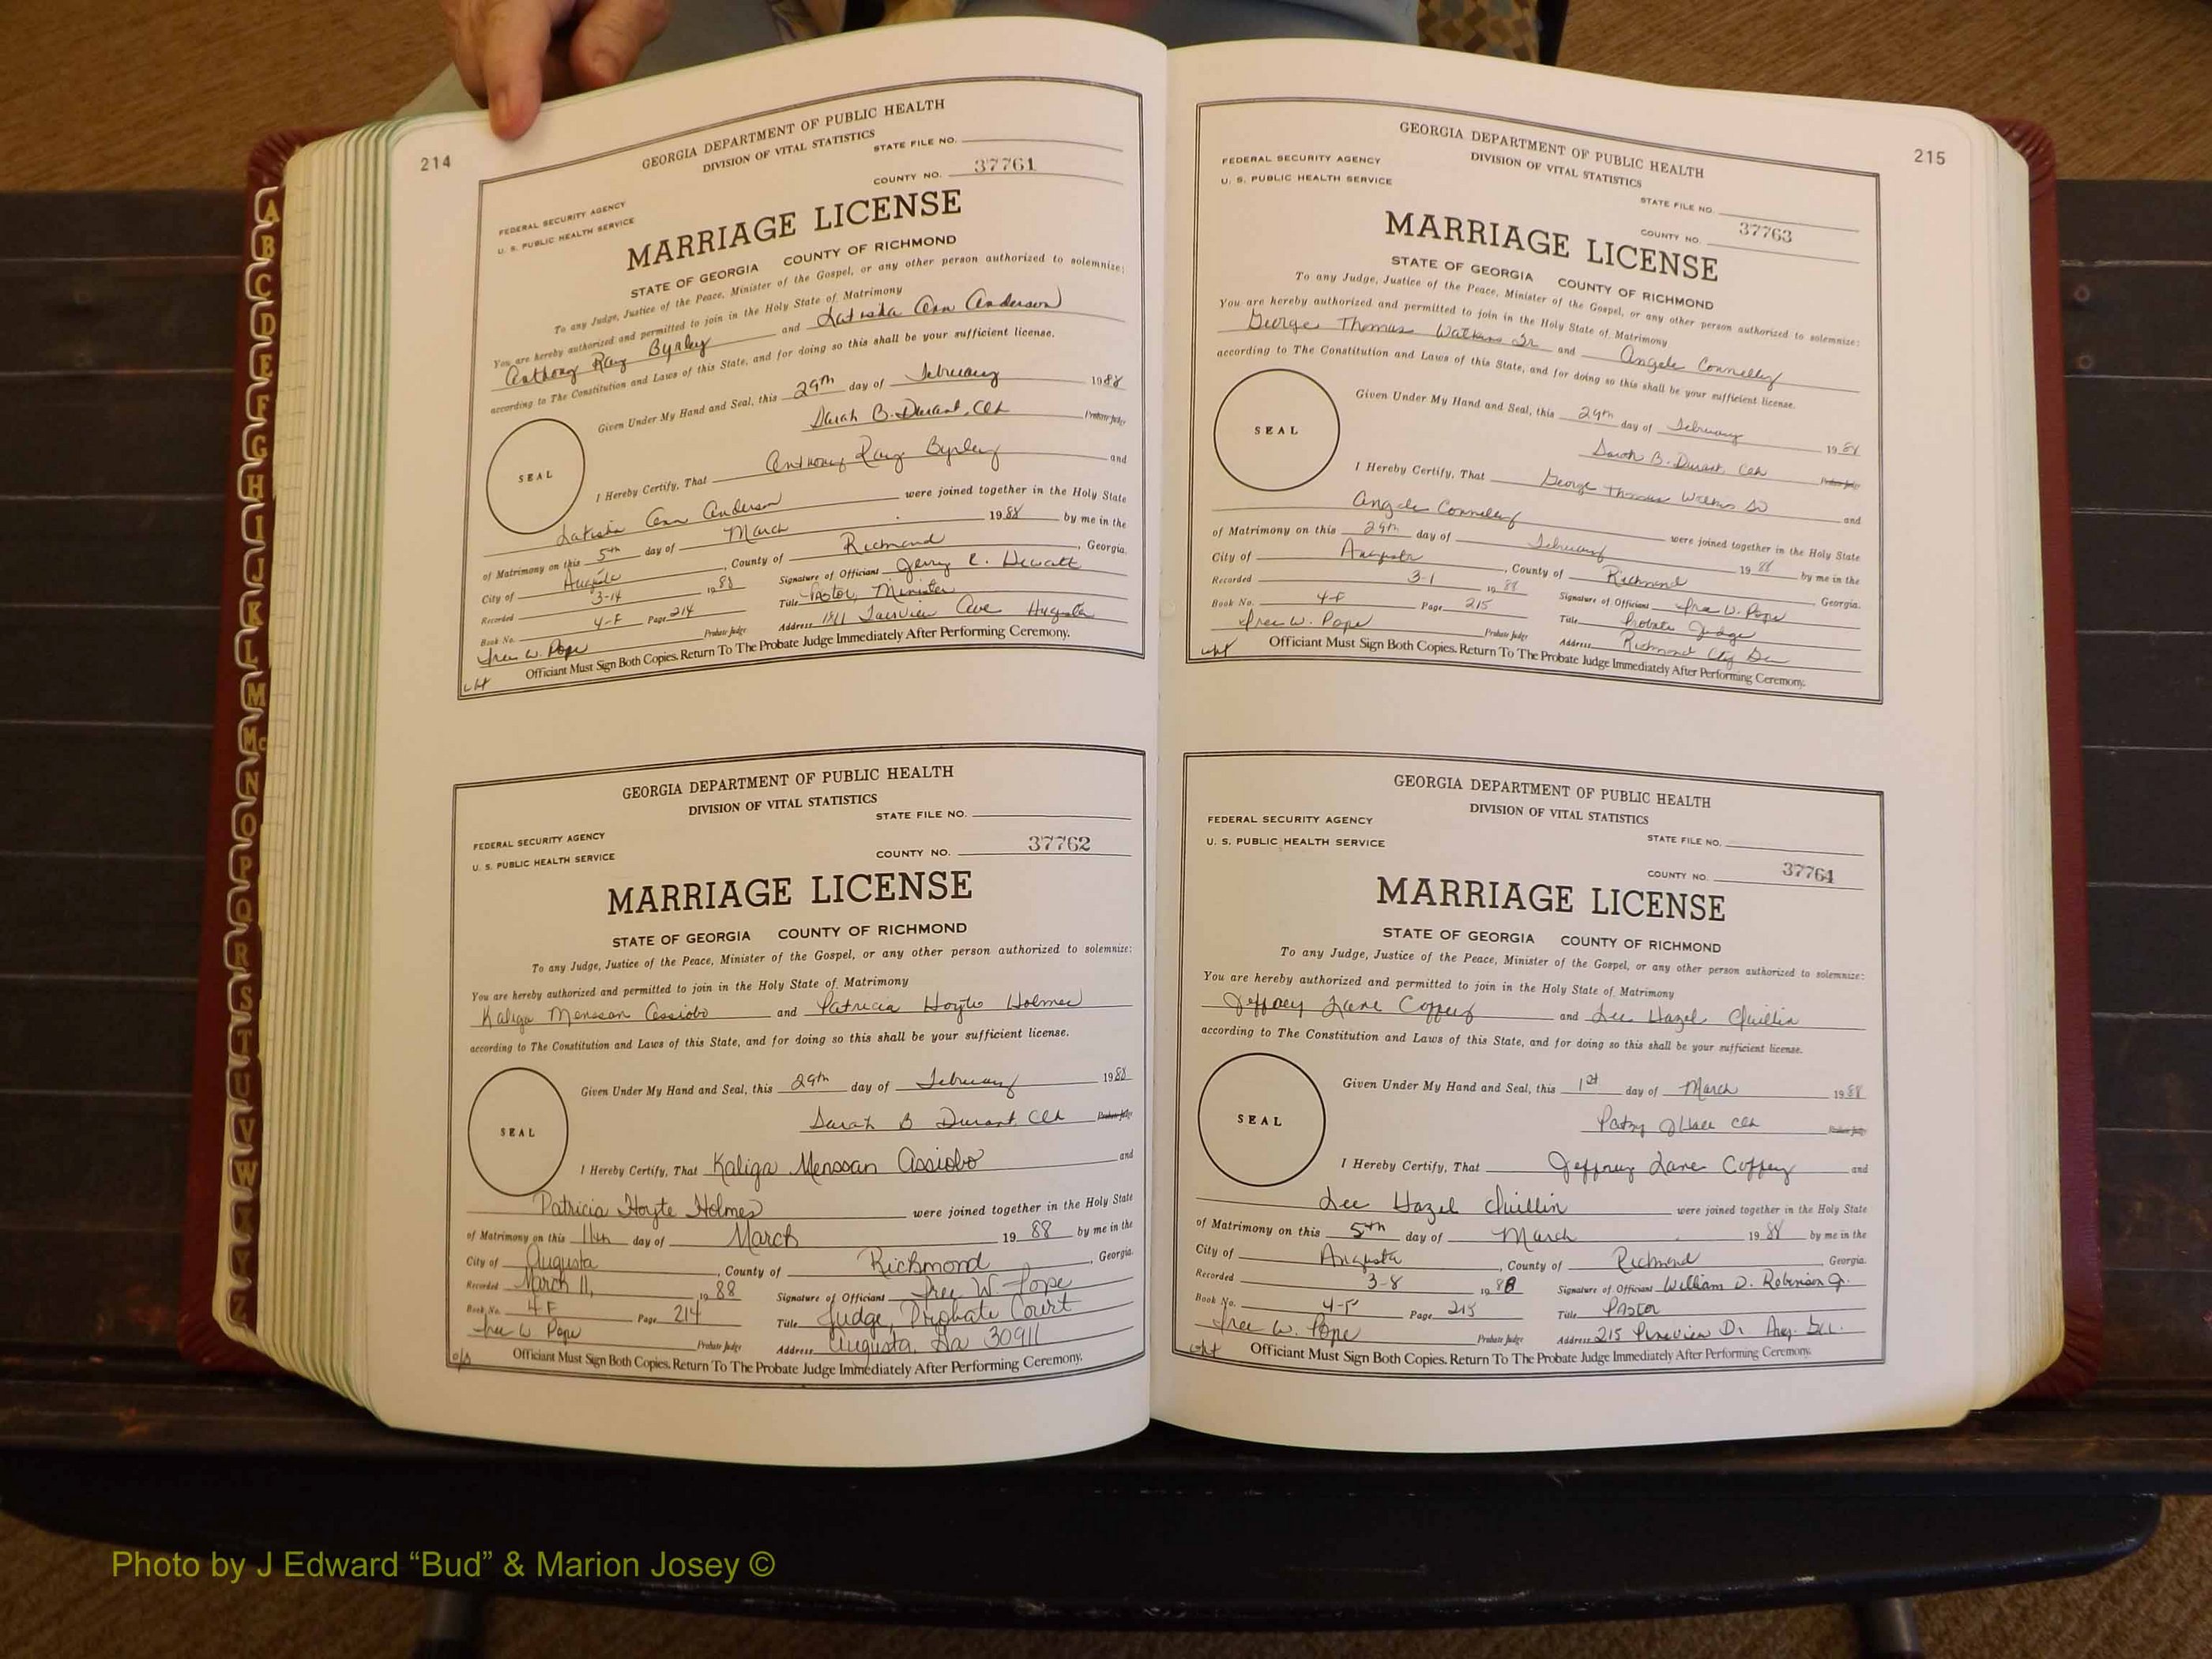 214
GEORGIA DEPARTMENT OF PUBLIC HEALTH
DIVISION OF VITAL STATISTICS
STATE FILE NO.
COUNTY NO. 37761
FEDERAL SECURITY AGENCY
U. S. PUBLIC HEALTH SERVICE
MARRIAGE LICENSE
STATE OF GEORGIA COUNTY OF RICHMOND
To any Judge, Justice of the Peace, Minister of the Gospel, or any other person authorized to solemnize:
You are hereby authorized and permitted to join in the Holy State of Matrimony
Anthony Ray Byrley and Latisha Ann Anderson
according to The Constitution and Laws of this State, and for doing so this shall be your sufficient license.
Given Under My Hand and Seal, this 29th day of February 1988
SEAL
Sarah B. Durant, Clk Probate Judge
I Hereby Certify, That Anthony Ray Byrley and
Latisha Ann Anderson were joined together in the Holy State
of Matrimony on this 5th day of March 1988 by me in the
City of Augusta, County of Richmond, Georgia.
Recorded 3-14 1988 Signature of Officiant Jerry L. Dewatt
Book No. 4-F Page 214 Title Pastor, Minister
Probate Judge Address 1811 Fairview Ave Augusta
Officiant Must Sign Both Copies. Return To The Probate Judge Immediately After Performing Ceremony.
GEORGIA DEPARTMENT OF PUBLIC HEALTH
DIVISION OF VITAL STATISTICS
STATE FILE NO.
FEDERAL SECURITY AGENCY
U. S. PUBLIC HEALTH SERVICE
COUNTY NO. 37762
MARRIAGE LICENSE
STATE OF GEORGIA COUNTY OF RICHMOND
To any Judge, Justice of the Peace, Minister of the Gospel, or any other person authorized to solemnize:
You are hereby authorized and permitted to join in the Holy State of Matrimony
Kaliga Menssan Assiobo and Patricia Hoyte Holmes
according to The Constitution and Laws of this State, and for doing so this shall be your sufficient license.
Given Under My Hand and Seal, this 29th day of February 1988
SEAL
Sarah B Durant, Clk Probate Judge
I Hereby Certify, That Kaliga Menssan Assiobo and
Patricia Hoyte Holmes were joined together in the Holy State
of Matrimony on this 11th day of March 1988 by me in the
City of Augusta, County of Richmond, Georgia.
Recorded March 11, 1988 Signature of Officiant W. Pope
Book No. 4F Page 214 Title Judge, Probate Court
W Pope Probate Judge Address Augusta, Ga 30911
Officiant Must Sign Both Copies. Return To The Probate Judge Immediately After Performing Ceremony.
215
GEORGIA DEPARTMENT OF PUBLIC HEALTH
DIVISION OF VITAL STATISTICS
FEDERAL SECURITY AGENCY
U. S. PUBLIC HEALTH SERVICE
STATE FILE NO.
COUNTY NO. 37763
MARRIAGE LICENSE
STATE OF GEORGIA COUNTY OF RICHMOND
To any Judge, Justice of the Peace, Minister of the Gospel, or any other person authorized to solemnize:
You are hereby authorized and permitted to join in the Holy State of Matrimony
George Thomas Watkins Sr and Angela Connelly
according to The Constitution and Laws of this State, and for doing so this shall be your sufficient license.
Given Under My Hand and Seal, this 29th day of February 1988
SEAL
Sarah B. Durant, Clk Probate Judge
I Hereby Certify, That George Thomas Watkins Sr and
Angela Connelly were joined together in the Holy State
of Matrimony on this 29th day of February 1988 by me in the
City of Augusta, County of Richmond Georgia.
Recorded 3-1 1988 Signature of Officiant W. Pope
Book No. 4-F Page 215 Title Probate Judge
W. Pope Probate Judge Address Richmond Cty Ga
Officiant Must Sign Both Copies. Return To The Probate Judge Immediately After Performing Ceremony.
GEORGIA DEPARTMENT OF PUBLIC HEALTH
DIVISION OF VITAL STATISTICS
FEDERAL SECURITY AGENCY
U. S. PUBLIC HEALTH SERVICE
STATE FILE NO.
COUNTY NO. 37764
MARRIAGE LICENSE
STATE OF GEORGIA COUNTY OF RICHMOND
To any Judge, Justice of the Peace, Minister of the Gospel, or any other person authorized to solemnize:
You are hereby authorized and permitted to join in the Holy State of Matrimony
Jeffrey Lane Coffey and Lee Hazel Quillin
according to The Constitution and Laws of this State, and for doing so this shall be your sufficient license.
Given Under My Hand and Seal, this 1st day of March 1988
SEAL
Patsy Clk Probate Judge
I Hereby Certify, That Jeffrey Lane Coffey and
Lee Hazel Quillin were joined together in the Holy State
of Matrimony on this 5th day of March 1988 by me in the
City of Augusta, County of Richmond Georgia.
Recorded 3-8 1988 Signature of Officiant William D. Robinson Jr.
Book No. 4-F Page 215 Title Pastor
W. Pope Probate Judge Address 215 Pineview Dr Aug. Ga.
Officiant Must Sign Both Copies. Return To The Probate Judge Immediately After Performing Ceremony.
A
B
C
D
E
F
G
H
I
J
K
L
M
Mc
N
O
P
Q
R
S
T
U
V
W
X
Y
Z
Photo by J Edward “Bud” & Marion Josey ©